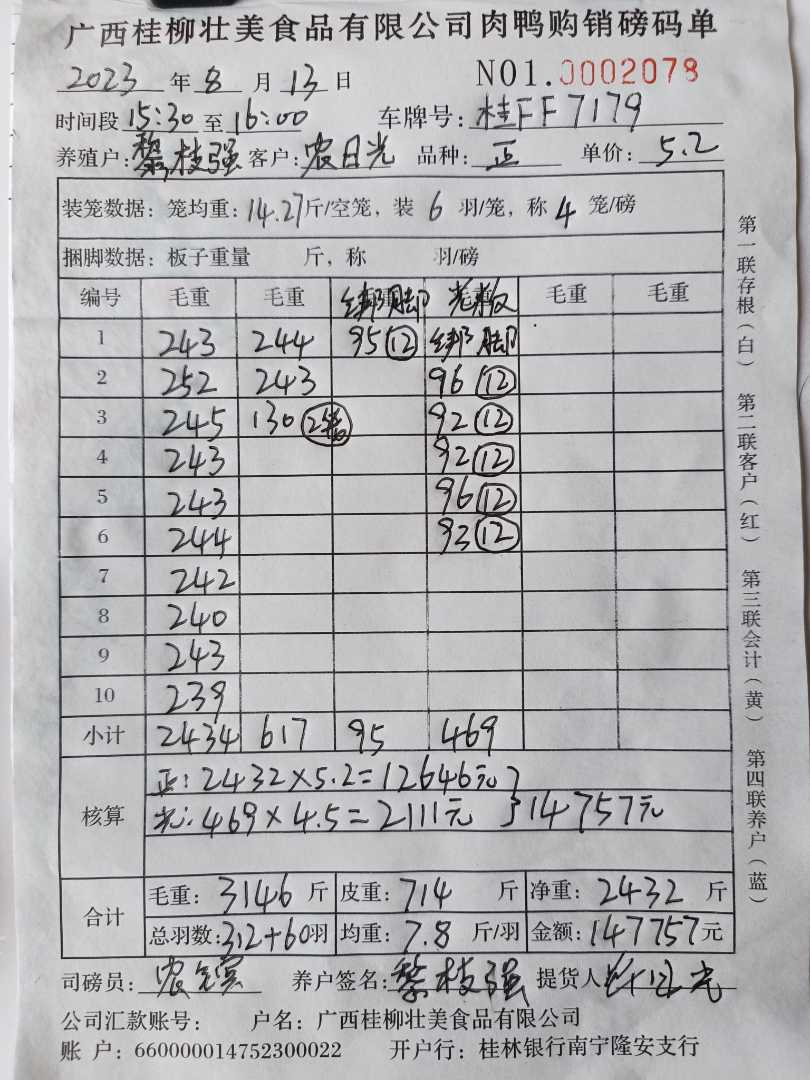 广西桂柳壮美食品有限公司肉鸭购销磅码单
2023 年 8 月 13 日 NO1.0002078
时间段 15:30 至 16:00 车牌号: 桂FF7179
养殖户: 黎枝强 客户: 农日光 品种: 正 单价: 5.2
装笼数据: 笼均重: 14.27斤/空笼, 装 6 羽/笼, 称 4 笼/磅
捆脚数据: 板子重量 斤, 称 羽/磅
编号 毛重 毛重 绑脚 光板 毛重 毛重
1 243 244 95 (12) 绑脚
2 252 243 96 (12)
3 245 130 (2笼) 92 (12)
4 243 92 (12)
5 243 96 (12)
6 244 93 (12)
7 242
8 240
9 243
10 239
小计 2434 617 95 469
核算
正: 2432×5.2=12646元
光: 469×4.5=2111元 } 14757元
合计
毛重: 3146 斤 皮重: 714 斤 净重: 2432 斤
总羽数: 312+60羽 均重: 7.8 斤/羽 金额: 147757元
司磅员: 养户签名: 黎枝强 提货人
公司汇款账号: 户名: 广西桂柳壮美食品有限公司
账 户: 660000014752300022 开户行: 桂林银行南宁隆安支行
第一联存根(白) 第二联客户(红) 第三联会计(黄) 第四联养户(蓝)